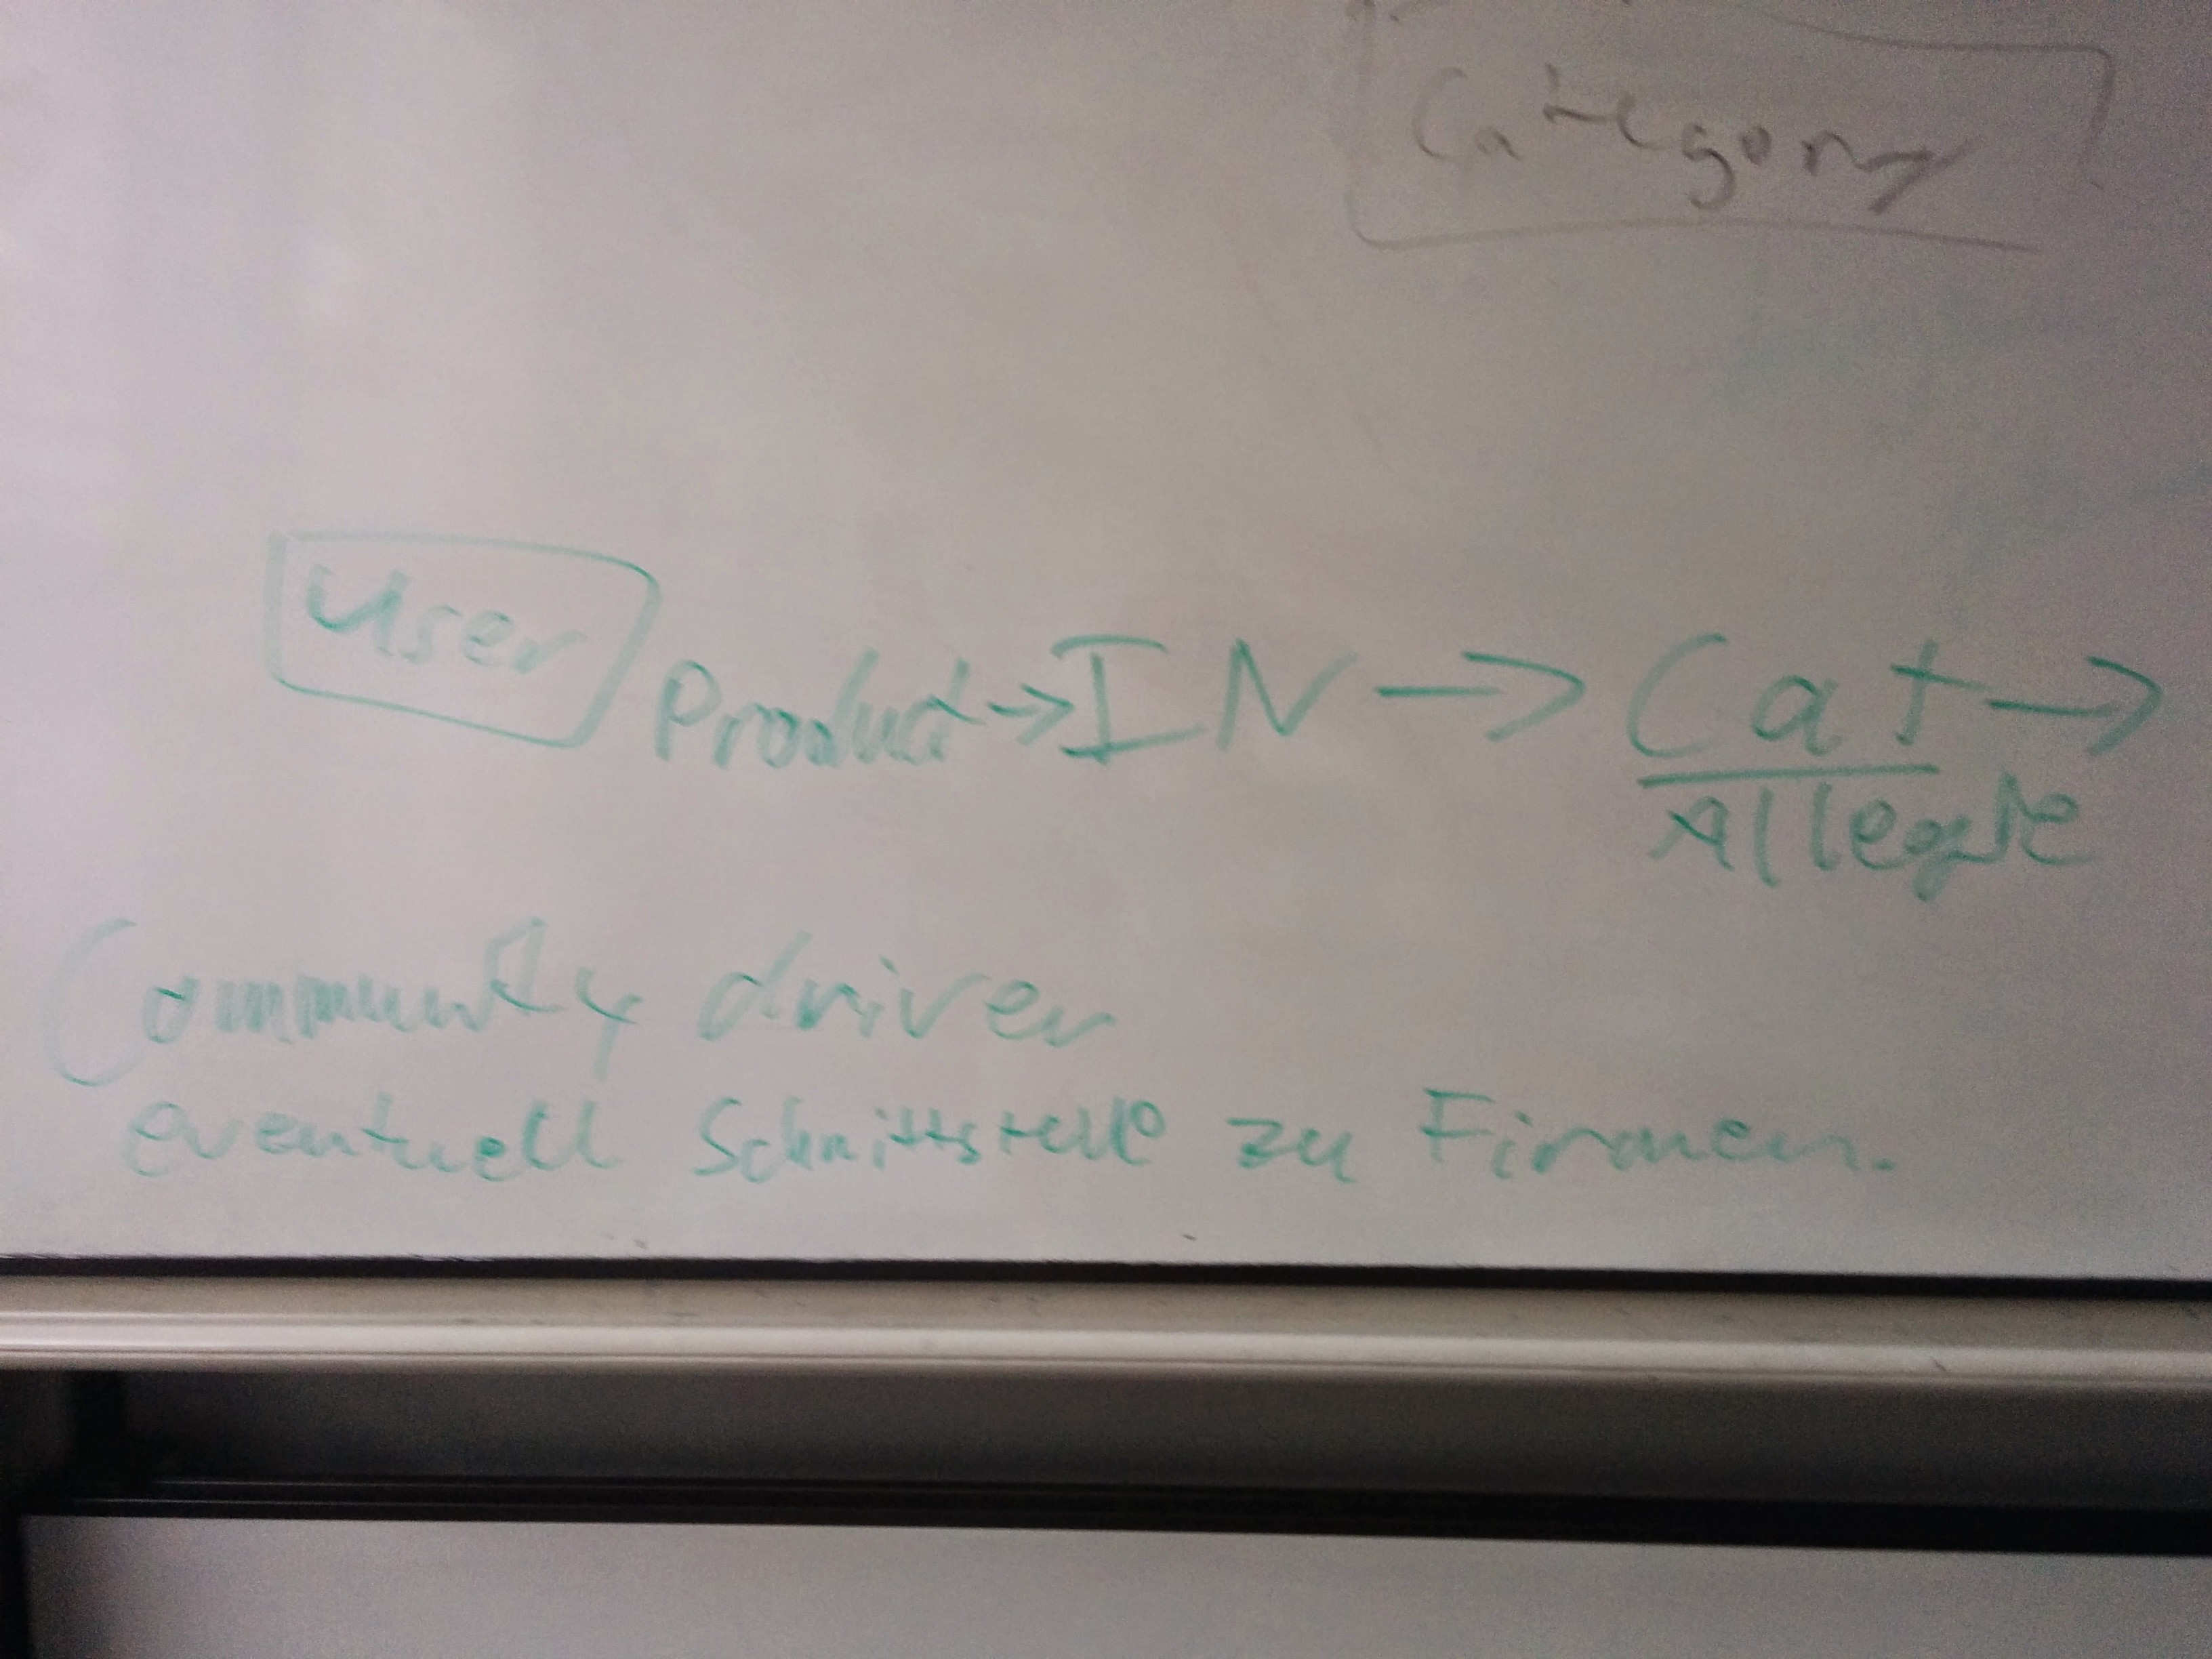 Category
User
Product → IN → Cat →
Allergie
Community driven
eventuell Schnittstelle zu Firmen.